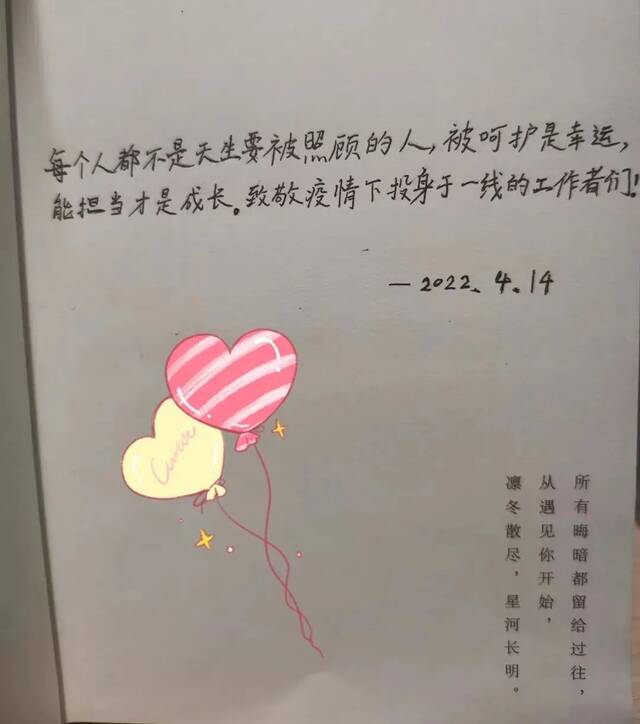 每个人都不是天生要被照顾的人，被呵护是幸运，
能担当才是成长。致敬疫情下投身于一线的工作者们！
—2022.4.14
所有晦暗都留给过往，
从遇见你开始，
凛冬散尽，星河长明。